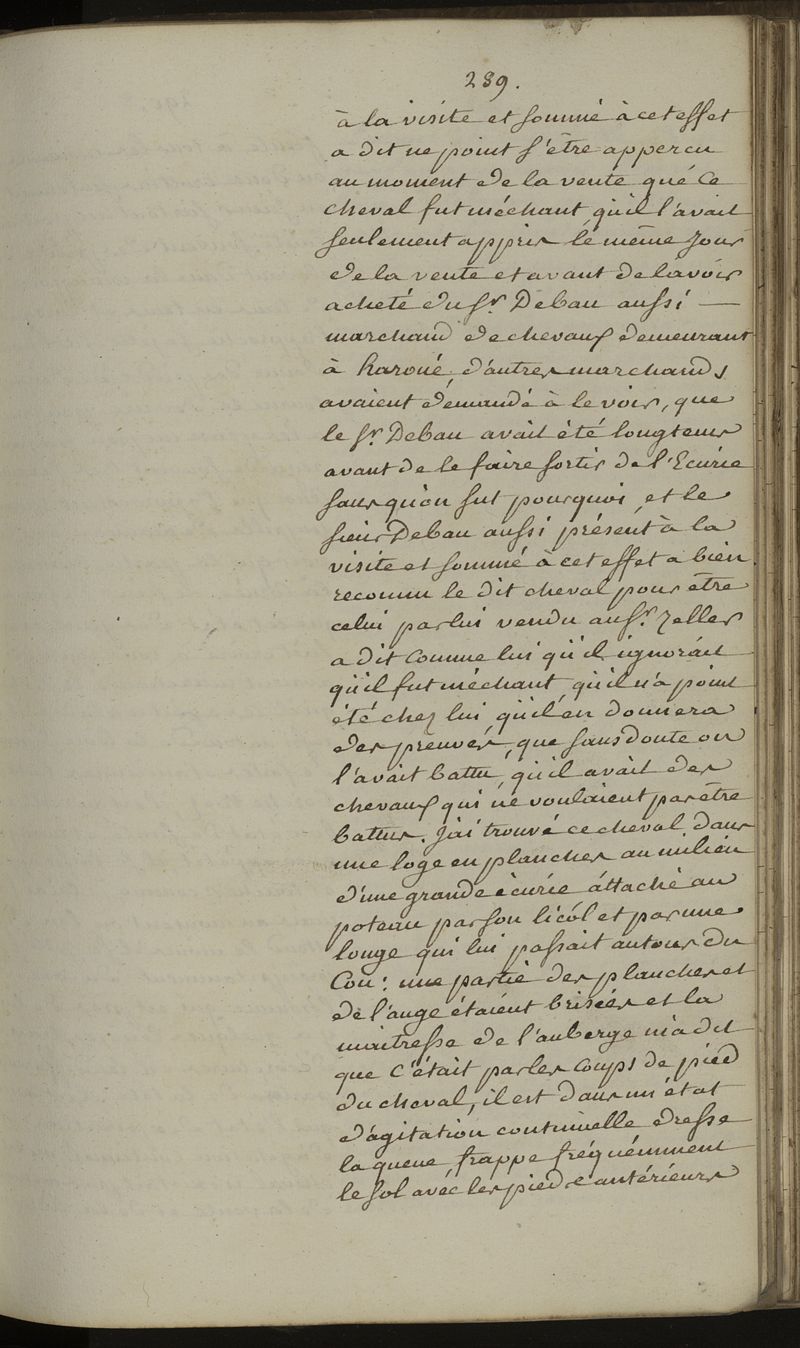 289.
à la visite et sommé à cet effet
a dit ne point s'être appercu
au moment de la vente qué ce
cheval fut méchant, qu'il l'avait
seulement appris lé même jour
de la vente et avant de l'avoir
acheté du Sr. Debau aussi —
marchand de chevaux demeurant
à haroué, d'autres marchands
avaient démandé à le voir, que
le Sr. Debau avait été longtems
avant de le faire sortir de l'Ecurie
sans qu'on sut pourquoi, et le
sieur Debau aussi présent à la
visite et sommé à cet effet a bien
reconnu le dit cheval pour être
celui par lui vendu au Sr. Zeller
a dit comme lui qu'il ignorait
qu'il fut méchant, qu'il n'a point
été chez lui, qu'il en donnera
des preuves, que sans doute on
l'avait battu, qu'il avait des
chevaux qui ne voulaient pas être
battus. J'ai trouvé ce cheval dans
une loge en planches au milieu
d'une grande écurie attaché au
poteau par son licol et par une
longe qui lui passait autour du
Cou: une partie des planches et
de l'auge étaient brisées et la
maitresse de l'auberge m'a dit
que c'était par les coups de pied
du cheval, il est dans un état
d'agitation continuelle dresse
la queue, frappe fréquemment
le sol avec les pieds antérieurs